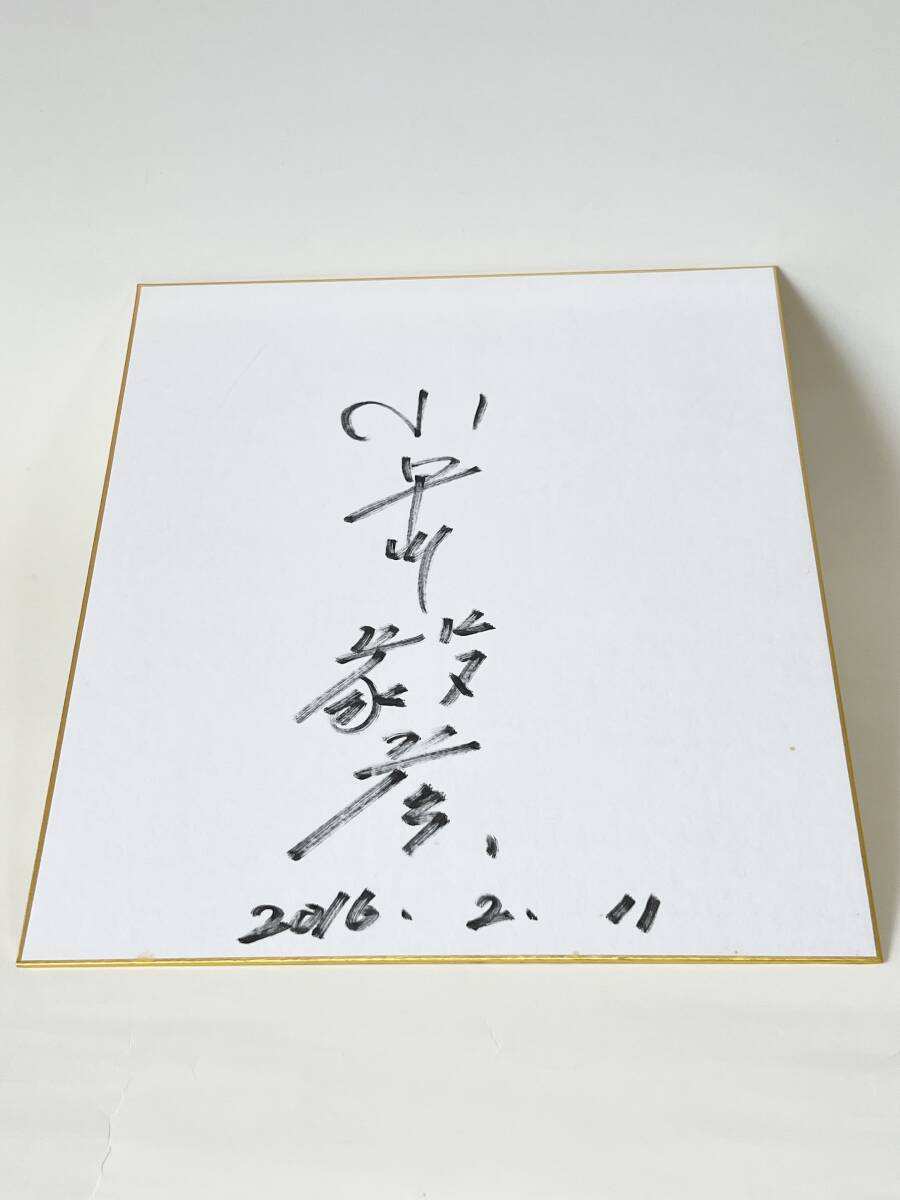 小早川毅彦
2016. 2. 11